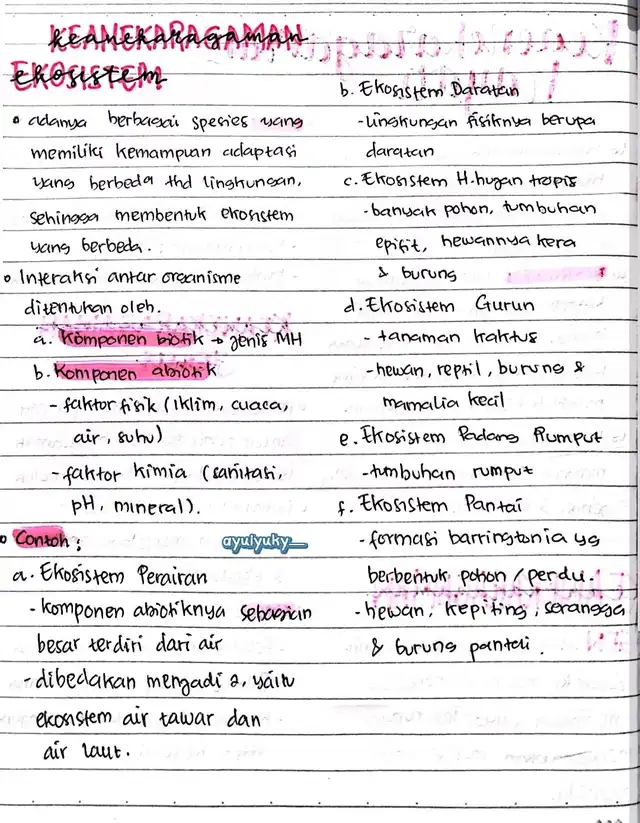 KEANEKARAGAMAN
EKOSISTEM
• adanya berbagai spesies yang
memiliki kemampuan adaptasi
yang berbeda thd lingkungan,
sehingga membentuk ekosistem
yang berbeda.
• Interaksi antar organisme
ditentukan oleh.
a. Komponen biotik → jenis MH
b. Komponen abiotik
- faktor fisik (iklim, cuaca,
air, suhu)
- faktor kimia (sanitasi,
pH, mineral).
• Contoh :
ayulyuky__
a. Ekosistem Perairan
- komponen abiotiknya sebagian
besar terdiri dari air
- dibedakan menjadi 2, yaitu
ekosistem air tawar dan
air laut.
b. Ekosistem Daratan
- lingkungan fisiknya berupa
daratan
c. Ekosistem H.hujan tropis
- banyak pohon, tumbuhan
epifit, hewannya kera
& burung
d. Ekosistem Gurun
- tanaman kaktus
- hewan, reptil, burung &
mamalia kecil
e. Ekosistem Padang Rumput
- tumbuhan rumput
f. Ekosistem Pantai
- formasi barringtonia yg
berbentuk pohon / perdu.
- hewan, kepiting, serangga
& burung pantai.